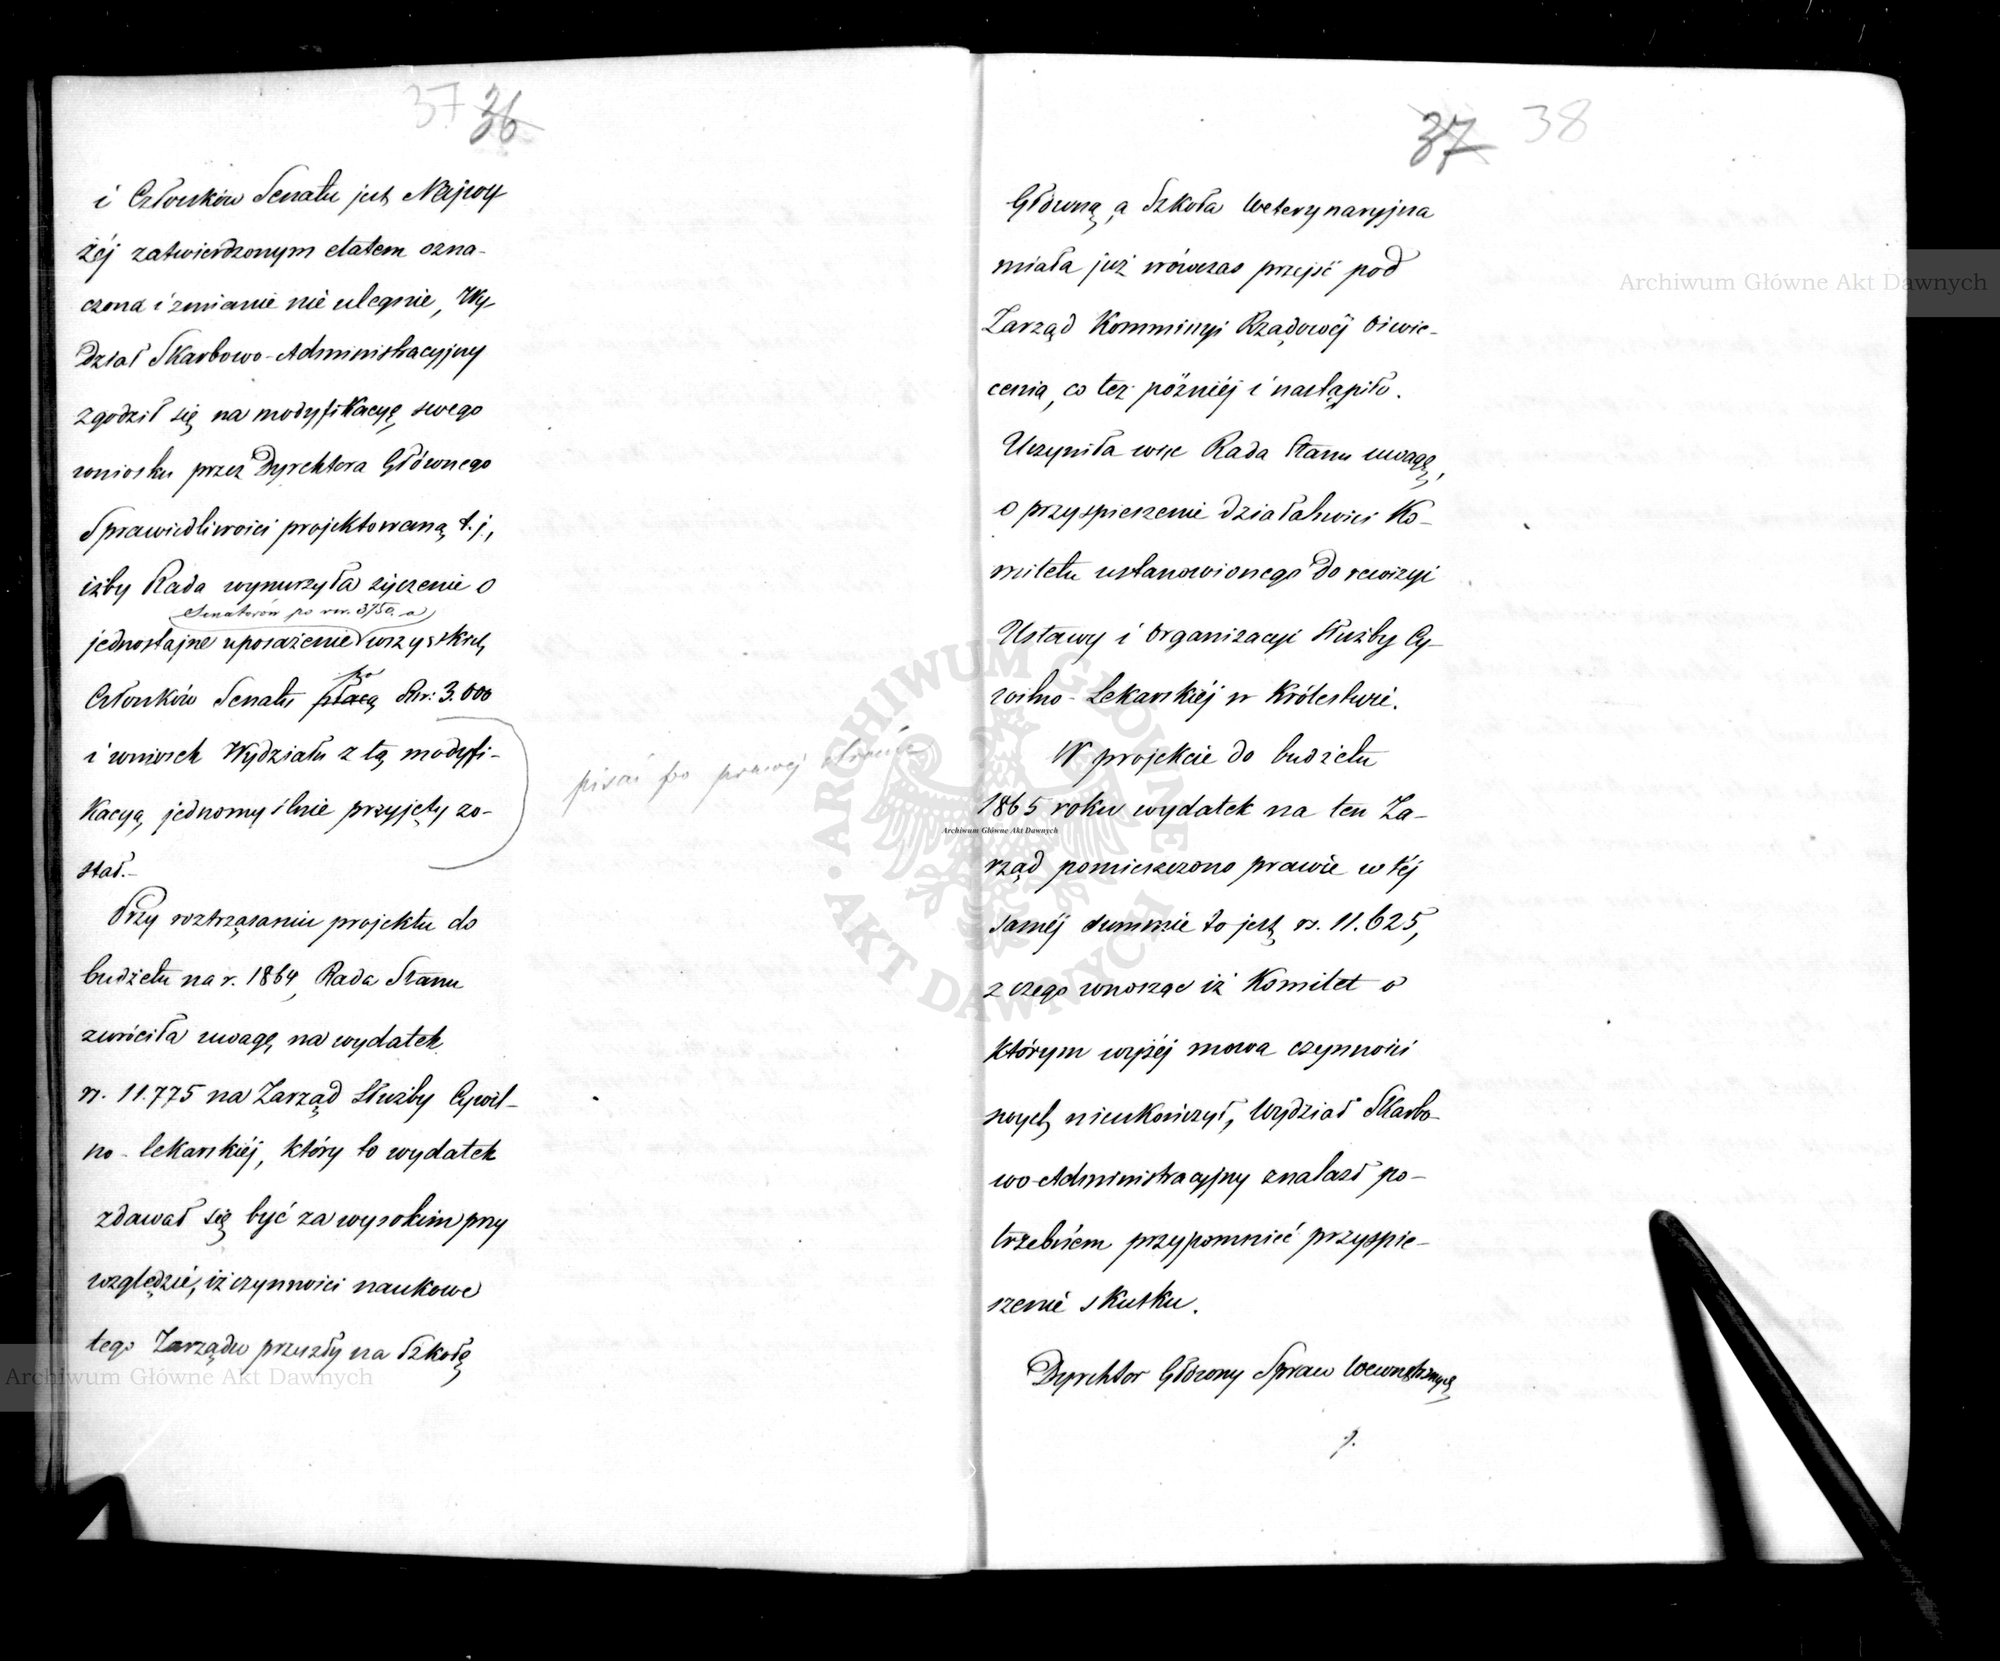 37 36
i Członków Senatu jest Najwy
żéj zatwierdzonym etatem ozna-
czona i zmianie nie ulegnie, Wy-
dział Skarbowo-Administracyjny
zgodził się na modyfikacyę swego
wniosku przez Dyrektora Głównego
Sprawiedliwości projektowaną t.j.,
iżby Rada wynurzyła życzenie o
Senatorów po rsr. 3750. a
jednostajne uposażenie wszystkich
po
Członków Senatu płacą Rsr: 3.000
i wniosek Wydziału z tą modyfi-
kacyą jednomyślnie przyjęty zo-
stał.-
pisać po prawej stronie
Przy roztrząsaniu projektu do
budżetu na r. 1864, Rada Stanu
zwróciła uwagę na wydatek
rs. 11.775 na Zarząd Służby Cywil-
no-lekarskiéj, który to wydatek
zdawał się być za wysokim przy
względzie, iż czynności naukowe
tego Zarządu przeszły na Szkołę
37 38
Główną, a Szkoła Weterynaryjna
miała już wówczas przejść pod
Zarząd Kommisyi Rządowéj Oświe-
cenia, co też później i nastąpiło.
Uczyniła więc Rada Stanu uwagę,
o przyspieszenie działalności Ko-
mitetu ustanowionego do rewizyi
Ustawy i Organizacyi Służby Cy-
wilno-Lekarskiéj w Królestwie.
W projekcie do budżetu
1865 roku wydatek na ten Za-
rząd pomieszczono prawie w téj
saméj summie to jest rs. 11.625,
z czego wnosząc iż Komitet o
którym wyżéj mowa czynności
swych nieukończył, Wydział Skarbo-
wo-Administracyjny znalazł po-
trzebném przypomnieć przyspie-
szenie skutku.
Dyrektor Główny Spraw Wewnętrznych
Archiwum Główne Akt Dawnych
Archiwum Główne Akt Dawnych
Archiwum Główne Akt Dawnych
ARCHIWUM GŁÓWNE · AKT DAWNYCH ·